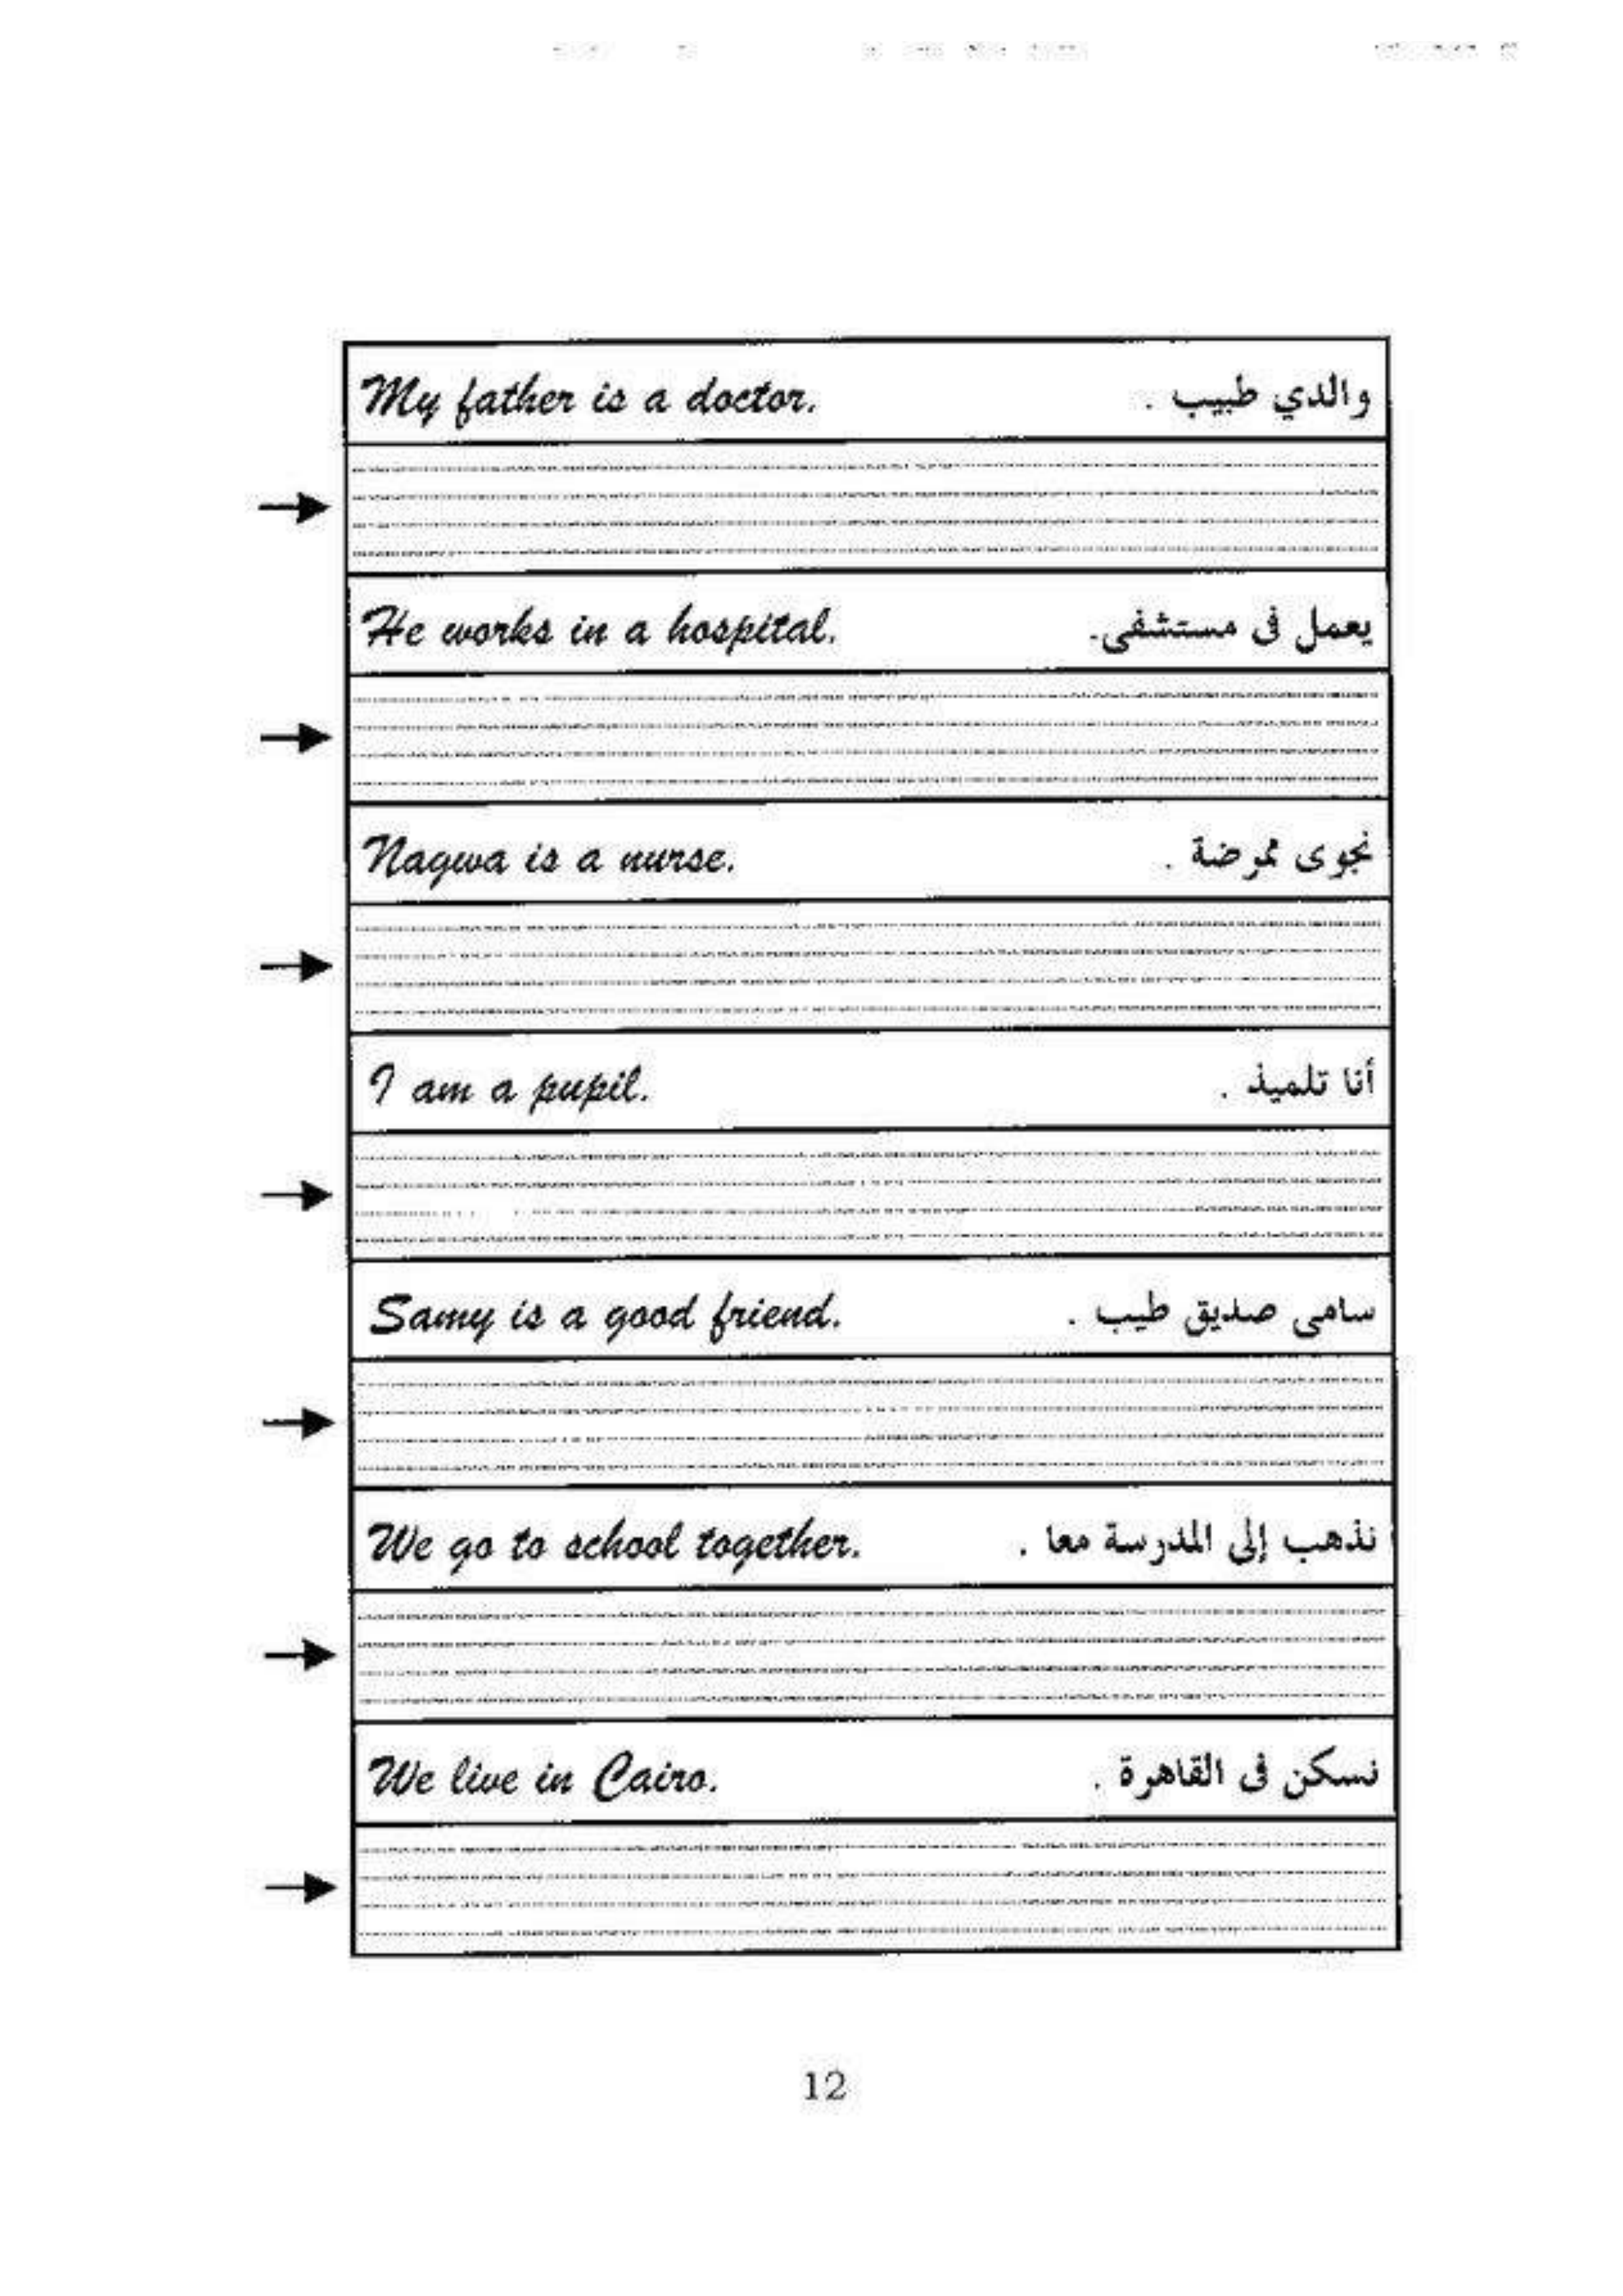 My father is a doctor. والدي طبيب .
He works in a hospital. يعمل فى مستشفى.
Nagwa is a nurse. نجوى ممرضة .
I am a pupil. أنا تلميذ .
Samy is a good friend. سامى صديق طيب .
We go to school together. نذهب إلى المدرسة معا .
We live in Cairo. نسكن فى القاهرة .
12